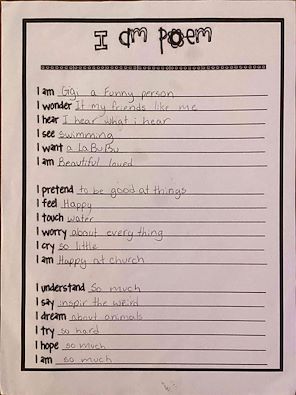 I am poem
I am Gigi a funny person
I wonder If my friends like me
I hear I hear what i hear
I see swimming
I want a LaBuBu
I am Beautiful loved
I pretend to be good at things
I feel Happy
I touch water
I worry about every thing
I cry so little
I am Happy at church
I understand So much
I say inspir the weird
I dream about animals
I try so hard
I hope so much
I am so much